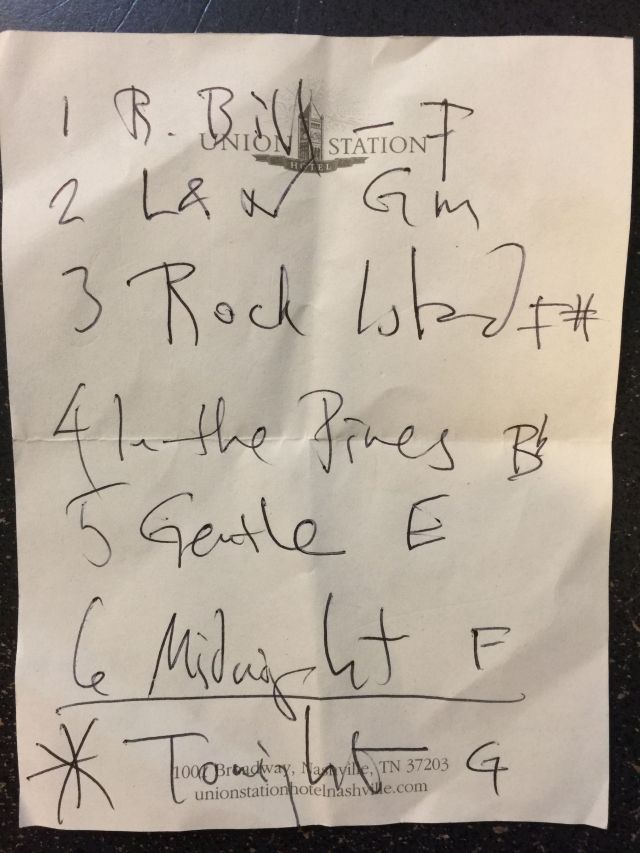 1 R. Bill - F
UNION STATION
HOTEL
2 L&N Gm
3 Rock Island F#
4 In the Pines Bb
5 Gentle E
6 Midnight F
* Tonight G
1001 Broadway, Nashville, TN 37203
unionstationhotelnashville.com